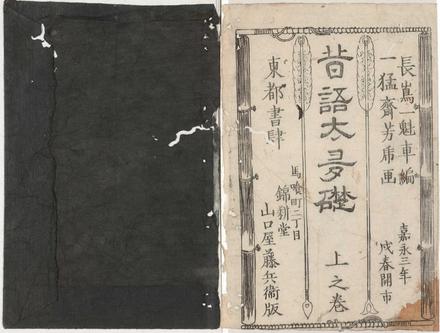 長嶌一魁車編
一猛齋芳席画
嘉永三年
戌春開市
昔語太多礎
上之巻
東都書肆
馬喰町二丁目
錦耕堂
山口屋藤兵衛版